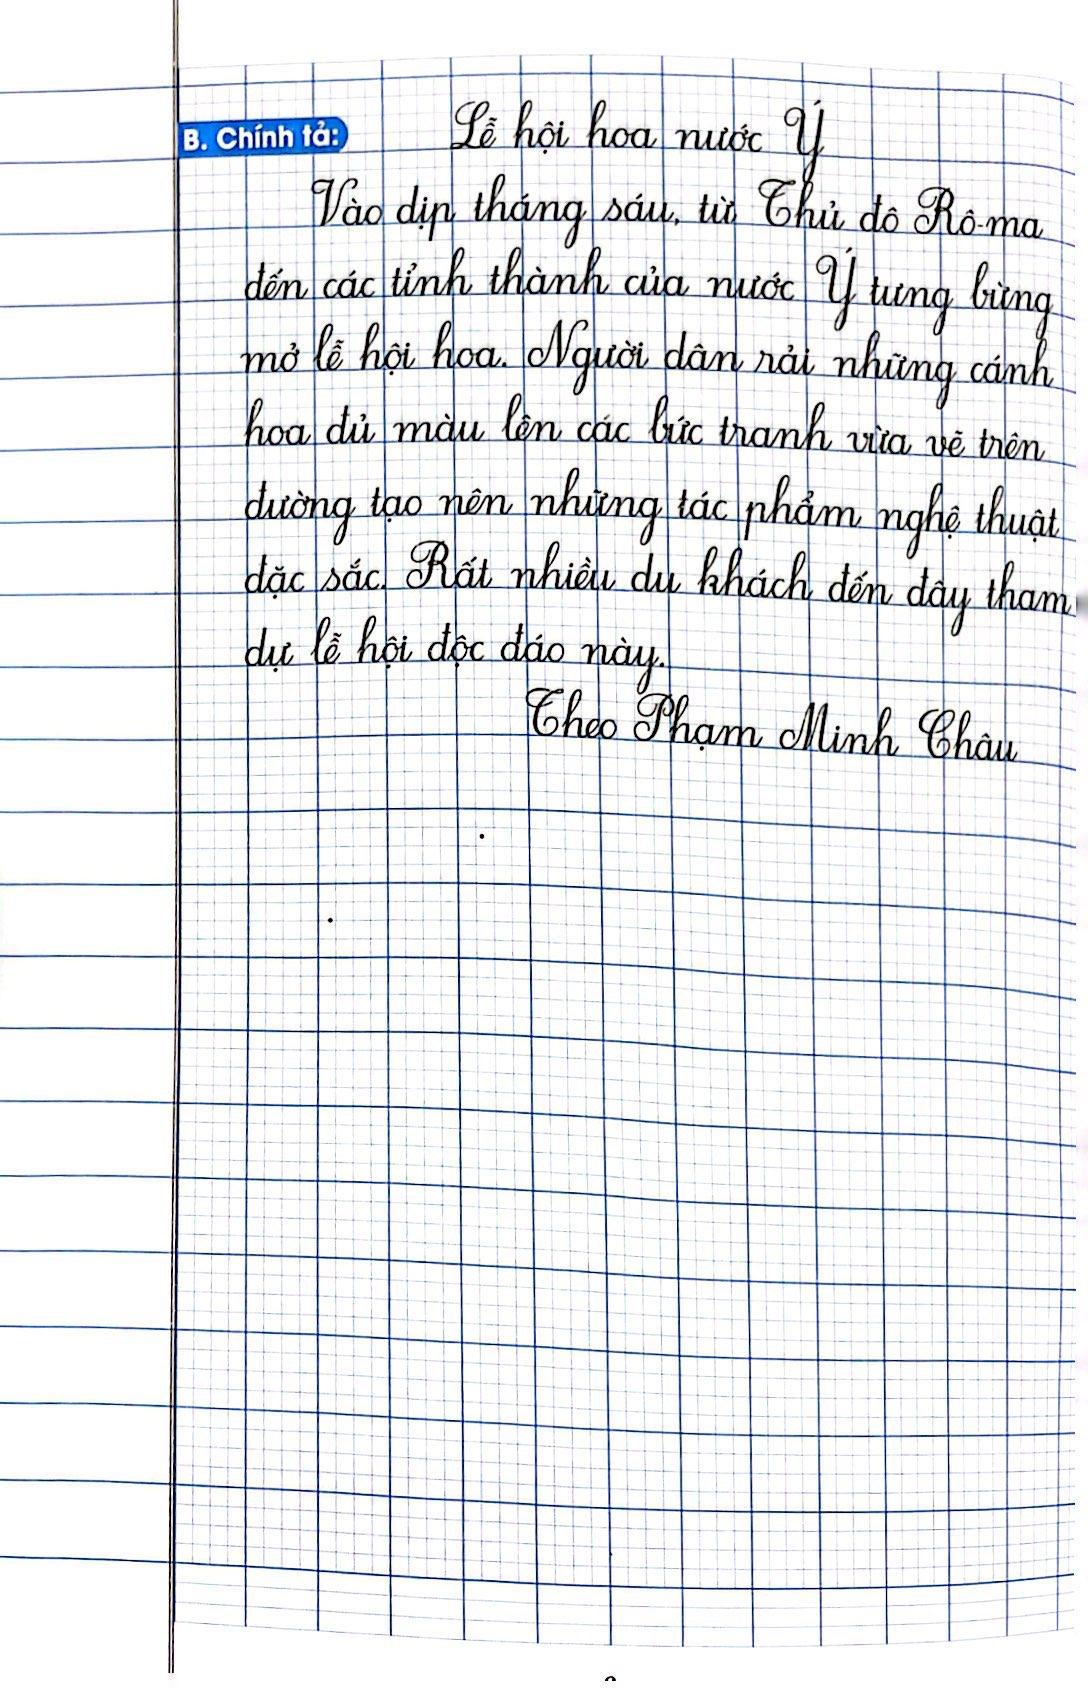 B. Chính tả: Lễ hội hoa nước Ý
Vào dịp tháng sáu, từ Thủ đô Rô-ma
đến các tỉnh thành của nước Ý tưng bừng
mở lễ hội hoa. Người dân rải những cánh
hoa đủ màu lên các bức tranh vừa vẽ trên
đường tạo nên những tác phẩm nghệ thuật
đặc sắc. Rất nhiều du khách đến đây tham
dự lễ hội độc đáo này.
Theo Phạm Minh Châu